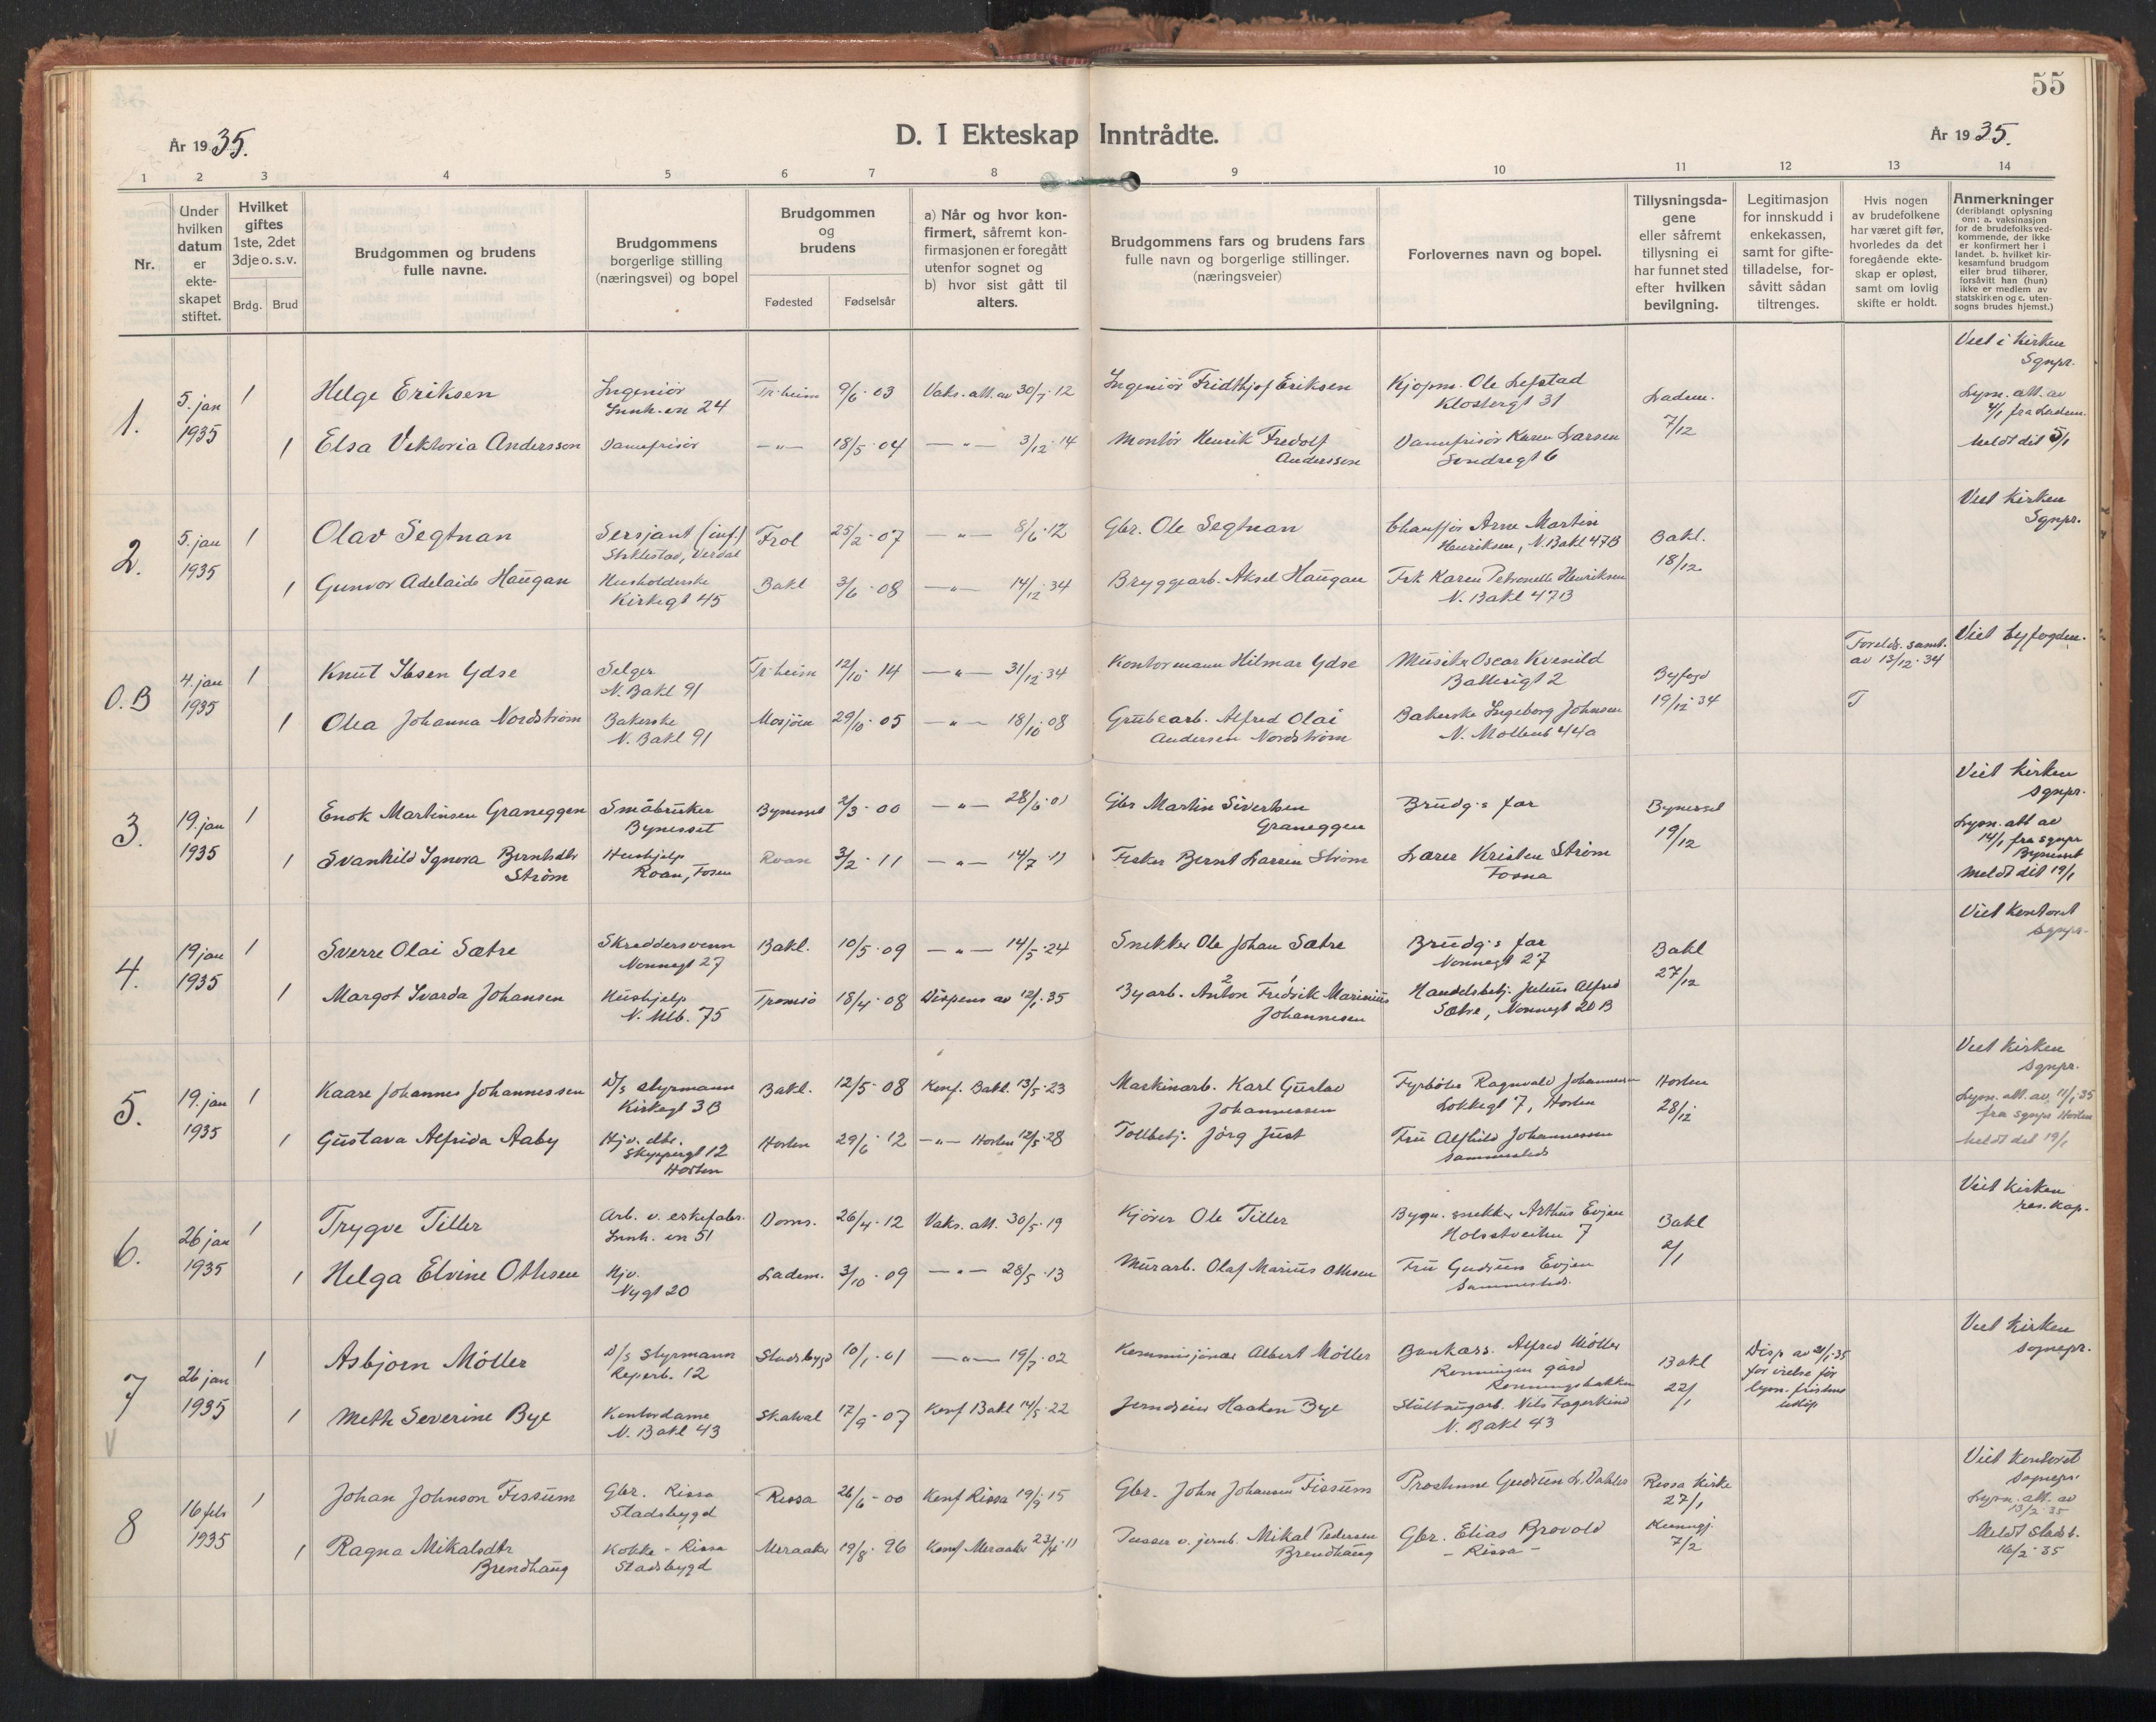 55
År 1935.
D. I Ekteskap Inntrådte.
År 1935.
1 2 3 4 5 6 7 8 9 10 11 12 13 14
Nr.
Under
hvilken
datum
er
ekte-
skapet
stiftet.
Hvilket
giftes
1ste, 2det
3dje o. s. v.
Brdg. Brud
Brudgommen og brudens
fulle navne.
Brudgommens
borgerlige stilling
(næringsvei) og bopel
Brudgommen
og
brudens
Fødested Fødselsår
a) Når og hvor kon-
firmert, såfremt kon-
firmasjonen er foregått
utenfor sognet og
b) hvor sist gått til
alters.
Brudgommens fars og brudens fars
fulle navn og borgerlige stillinger.
(næringsveier)
Forlovernes navn og bopel.
Tillysningsda-
gene
eller såfremt
tillysning ei
har funnet sted
efter hvilken
bevilgning.
Legitimasjon
for innskudd i
enkekassen,
samt for gifte-
tilladelse, for-
såvitt sådan
tiltrenges.
Hvis nogen
av brudefolkene
har været gift før,
hvorledes da det
foregående ekte-
skap er opløst,
samt om lovlig
skifte er holdt.
Anmerkninger
(deriblandt oplysning
om: a. vaksinasjon
for de brudefolks ved-
kommende, der ikke
er konfirmert her i
landet. b. hvilket kir-
kesamfund brudgom
eller brud tilhører,
forsåvitt han (hun)
ikke er medlem av
statskirken og c. uten-
sogns brudes hjemst.)
1.
5. jan
1935
1
Helge Eriksen
Ingeniør
Innh.vn 24
Tr.heim
9/6 · 03
Vaks. att. av 30/7 · 12
Ingeniør Fridthjof Eriksen
Kjøpm. Ole Lefstad
Klostergt 31
Ladem.
7/12
Viet i kirken
Sgnpr.
Lysn. att. av
4/1 fra Ladem.
Meldt dit 5/1
1
Elsa Viktoria Andersson
Damefrisør
— " —
18/5 · 04
— " — 3/12 · 14
Montør Henrik Fredolf
Andersson
Damefrisør Karen Larsen
Sondregt 6
2.
5. jan
1935
1
Olav Segtnan
Sersjant (inf.)
Stiklestad, Verdal
Frol
25/2 · 07
— " — 8/6 · 12
Gbr. Ole Segtnan
Chauffør Arne Martin
Henriksen, N. Bakl 47B
Bakl.
18/12
Viet kirken
Sgnpr.
1
Gunvor Adelaide Haugan
Husholderske
Kirkegt 45
Bakl
3/6 · 08
— " — 14/12 · 34
Bryggearb. Aksel Haugan
Frk. Karen Petronelle Henriksen
N. Bakl 47B
O.B
4. jan
1935
1
Knut Ibsen Ydse
Selger
N. Bakl 91
Tr.heim
12/10 · 14
— " — 31/12 · 34
Kontormann Hilmar Ydse
Musiker Oscar Kvenild
Ballerigt 2
Byfogd
19/12 · 34
Forelds. samt.
av 13/12 · 34
Viet byfogden.
1
Olea Johanna Nordstrøm
Bakerske
N. Bakl 91
Mosjøen
29/10 · 05
— " — 18/10 · 08
Grubearb. Alfred Olai
Andersen Nordstrøm
Bakerske Ingeborg Johnsen
N. Mollenb 44a
3.
19. jan
1935
1
Enok Martinsen Graneggen
Småbruker
Bynesset
Bynesset
2/3 · 00
— " — 28/6 · 01
Gbr Martin Sivertsen
Graneggen
Brudg.s far
Bynesset
19/12
Viet kirken
sgnpr.
Lysn. att av
14/1 fra sgnpr
Bynesset
Meldt dit 19/1
1
Svanhild Ignora Berntsdtr
Strøm
Hushjelp
Roan, Fosen
Roan
3/2 · 11
— " — 14/7 · 11
Fisker Bernt Larsen Strøm
Lærer Kristen Strøm
Fosna
4.
19 jan
1935
1
Sverre Olai Sætre
Skreddersvenn
Nonnegt 27
Bakl.
10/5 · 09
— " — 14/5 · 24
Snekker Ole Johan Sætre
Brudg.s far
Nonnegt 27
Bakl
27/12
Viet kontoret
sgnpr.
1
Margot Ivarda Johansen
Hushjelp
N. Mlb. 75
Tromsø
18/4 · 08
Dispens av 12/1 · 35
Byarb. Anton Fredrik Marinius
Johannesen
Handelsbetj. Julius Alfred
Sætre, Nonnegt 20 B
5.
19. jan
1935
1
Kaare Johannes Johannessen
D/s styrmann
Kirkegt 3B
Bakl.
12/5 · 08
Konf. Bakl. 13/5 · 23
Maskinarb. Karl Gustav
Johannessen
Fyrbøter Ragnvald Johannessen
Lokkegt 7, Horten
Horten
28/12
Viet kirken
sgnpr.
Lysn. att. av. 11/1 · 35
fra sgnpr Horten
Meldt dit 19/1
1
Gustava Alfrida Aaby
Hjv. dtr.
Skippergt 12
Horten
Horten
29/6 · 12
— " — Horten 12/5 · 28
Tollbetj. Jörg Just
Fru Alfhild Johannessen
sammesteds
6.
26 jan
1935
1
Trygve Tiller
Arb. v. eskefabr.
Innh. vn 51
Doms.
26/4 · 12
Vaks. att. 30/5 · 19
Kjører Ole Tiller
Bygn. snekker Arthur Evjen
Holsetveien 7
Bakl
2/1
Viet kirken
res. kap.
1
Helga Elvine Othsen
Hjv.
Nygt 20
Ladem.
3/10 · 09
— " — 28/5 · 13
Murarb. Olaf Marius Othsen
Fru Gudrun Evjen
Sammesteds.
7
V
26 jan
1935
1
Asbjørn Møller
D/s styrmann
Reperb. 12
Stadsbygd
10/1 · 01
— " — 19/7 · 02
Kommisjonær Albert Møller
Bankass. Alfred Møller
Ronningen gård
Ronningsbakken
Bakl
22/1
Disp av 21/1 · 35
for vielse før
lysn. fristens
utløp
Viet kirken
sognepr.
1
Meth Severine Bye
Kontordame
N. Bakl 43
Skatval
17/9 · 07
Konf Bakl 14/5 · 22
Jerndreier Haaken Bye
Nils Fagerkind
N. Bakl 43
8
16 feb
1935
1
Johan Johnson Fissum
Gbr. Rissa
Stadsbygd
Rissa
26/6 - 00
Konf Rissa 19/9 · 15
Gbr. John Johansen Fissum
Prostinne Gudrun L. Dahles
Rissa Kirke
27/1
Kunngj.
7/2
Viet kontoret
sognepr.
Lysn. att. av
13/2 · 35
Meldt Stadsb.
16/2 · 35
1
Ragna Mikalsdtr
Brendhaug
Kokke - Rissa
Stadsbygd
Meraaker
19/8 · 96
Konf Meraaker 23/4 · 11
Pusser v. jernb. Mikal Pedersen
Brendhaug
Gbr. Elias Brovold
- Rissa -